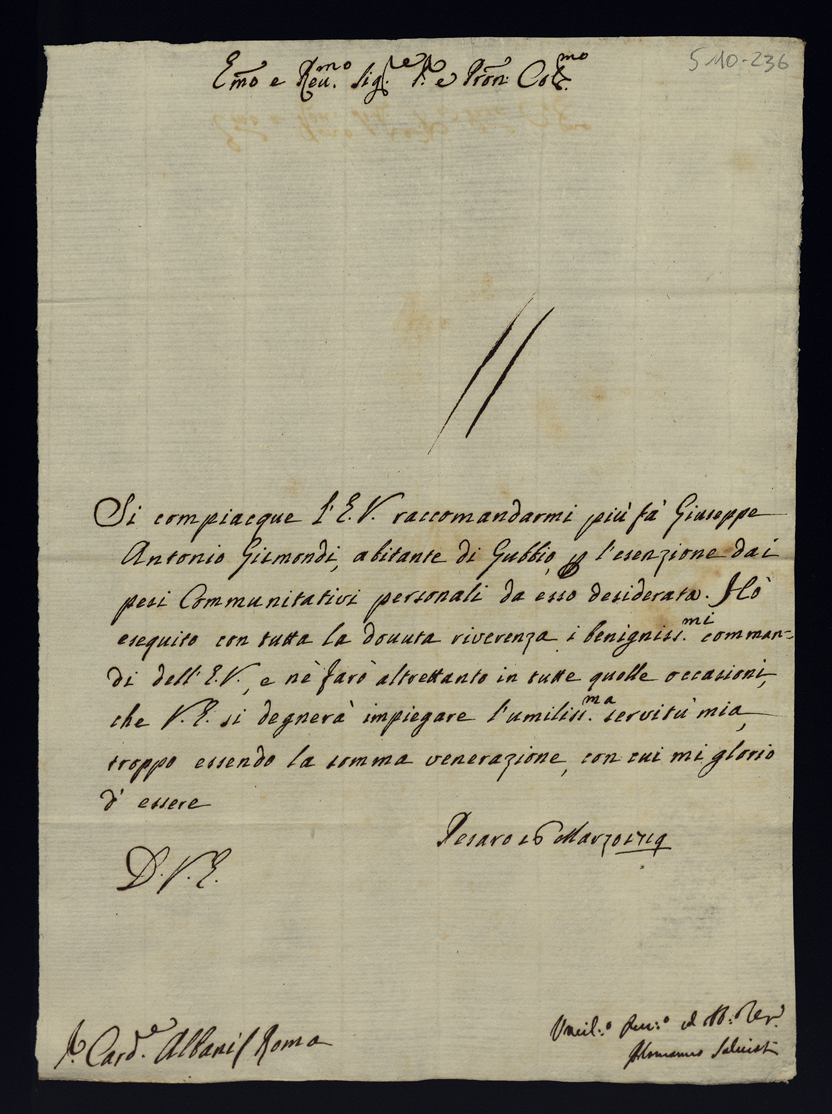 510-236
Em̃o e Reu.mo Sig.re P.re e Prõn. Col.mo
Si compiacque l'E.V. raccomandarmi più fà Giuseppe
Antonio Gismondi, abitante di Gubbio, p l'esenzione dai
pesi Communitativi personali da esso desiderata. Hò
eseguito con tutta la douuta riverenza i benigniss.mi comman-
di dell'E.V., e nè farò altrettanto in tutte quelle occasioni,
che V.E. si degnerà impiegare l'umiliss.ma servitù mia,
troppo essendo la somma venerazione, con cui mi glorio
d'essere
Pesaro 16 Marzo 1719
D.V.E.
Card.e Albani / Roma
Vmil:o Deu:o